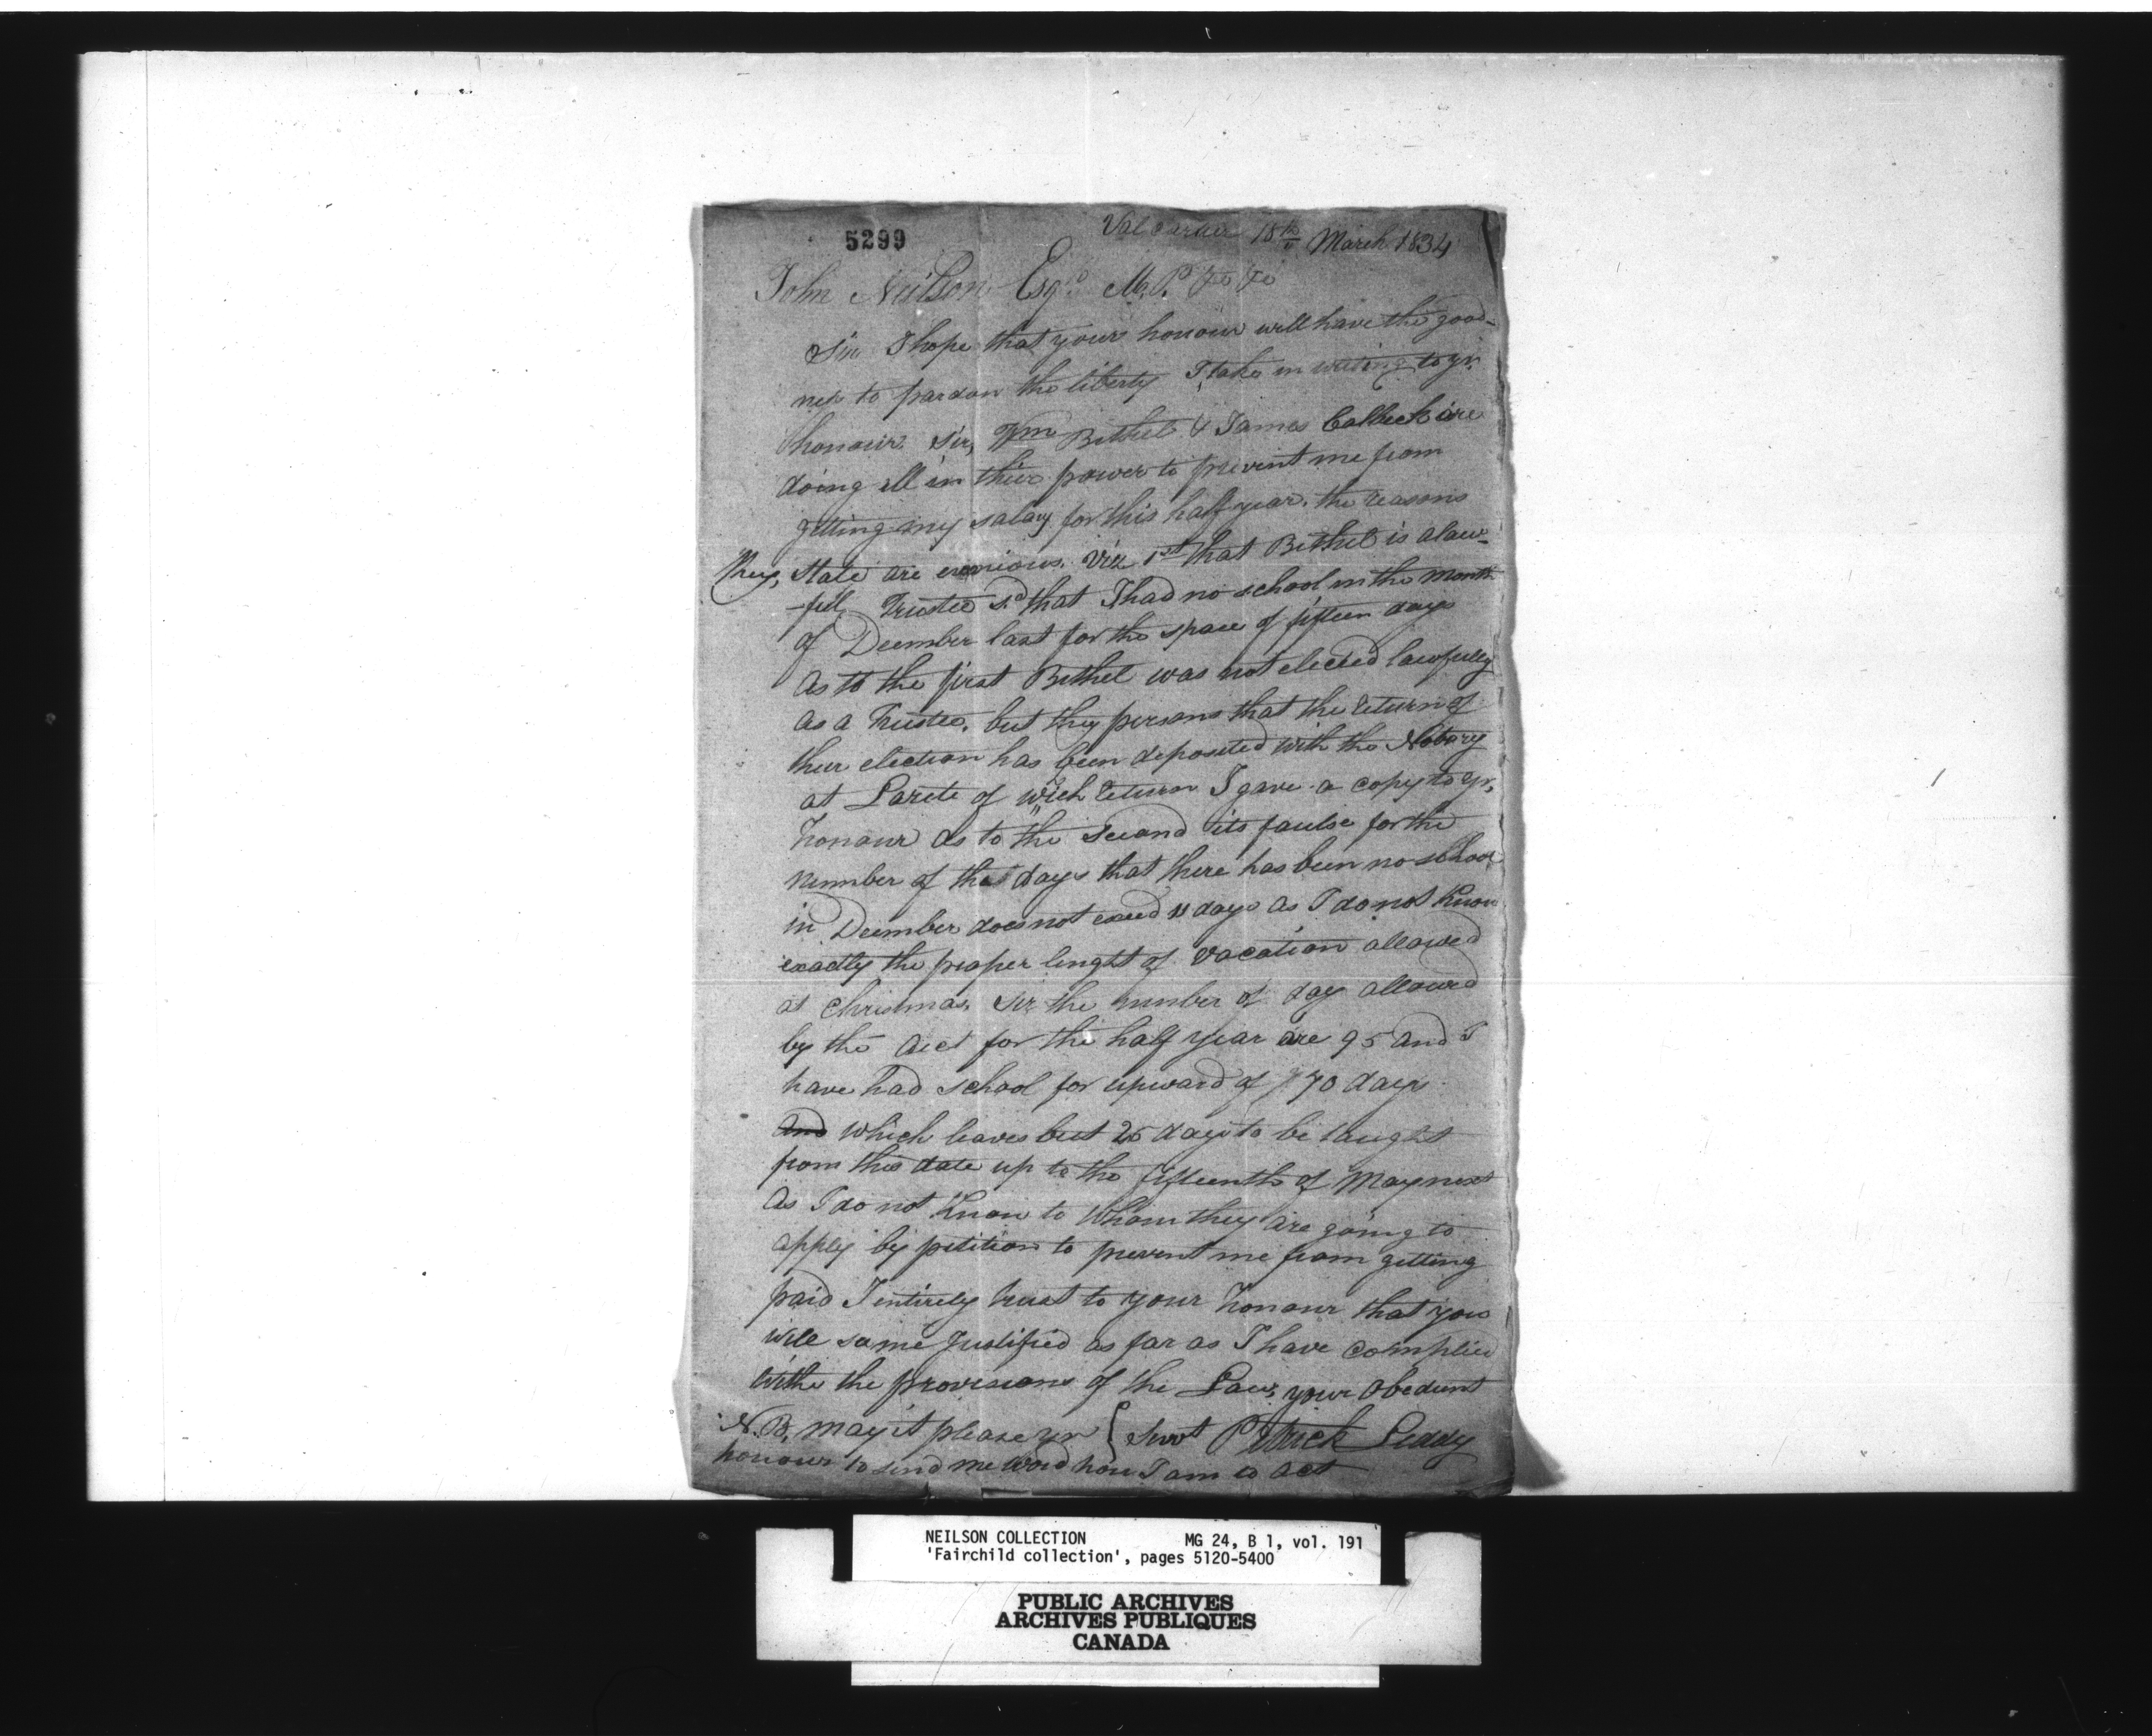 5299
Valcartier 18th March 1834
John Neilson Esqr. M.P. &c &c
Sir I hope that your honour will have the good-
ness to pardon the liberty I take in writing to yr.
honour. Sir, Wm Bethel & James Colbeck are
doing all in thier power to prevent me from
getting my salary for this half year. the reasons
they, state are erronious. Viz 1st that Bethel is a law-
-full Trustee 2d that I had no school in the month
of December last for the space of fifteen days
As to the first Bethel was not elected lawfully
as a Trustee. but they persons that the return of
their election has been deposited with the Notary
at Lorete of wich return I gave a copy to yr,
honour as to the second its faulse for the
number of the days that there has been no school
in December does not exeed 11 days as I do not know
exactly the proper lenght of vacation allowed
at christmas, Sir the number of day allowed
by the act for the half year are 95 and I
have had school for upward of 70 days
and which leaves but 25 days to be taught
from this date up to the fifteenth of May next
As I do not Know to whom they are going to
apply by petition to prevent me from getting
paid I entirely trust to your honour that you
will so me Justified as far as I have complied
withe the provisions of the Law, your Obedient
N.B. may it please yr { Servt Patrick Leddy
honour to send me word how I am to act
NEILSON COLLECTION MG 24, B 1, vol. 191
'Fairchild collection', pages 5120-5400
PUBLIC ARCHIVES
ARCHIVES PUBLIQUES
CANADA